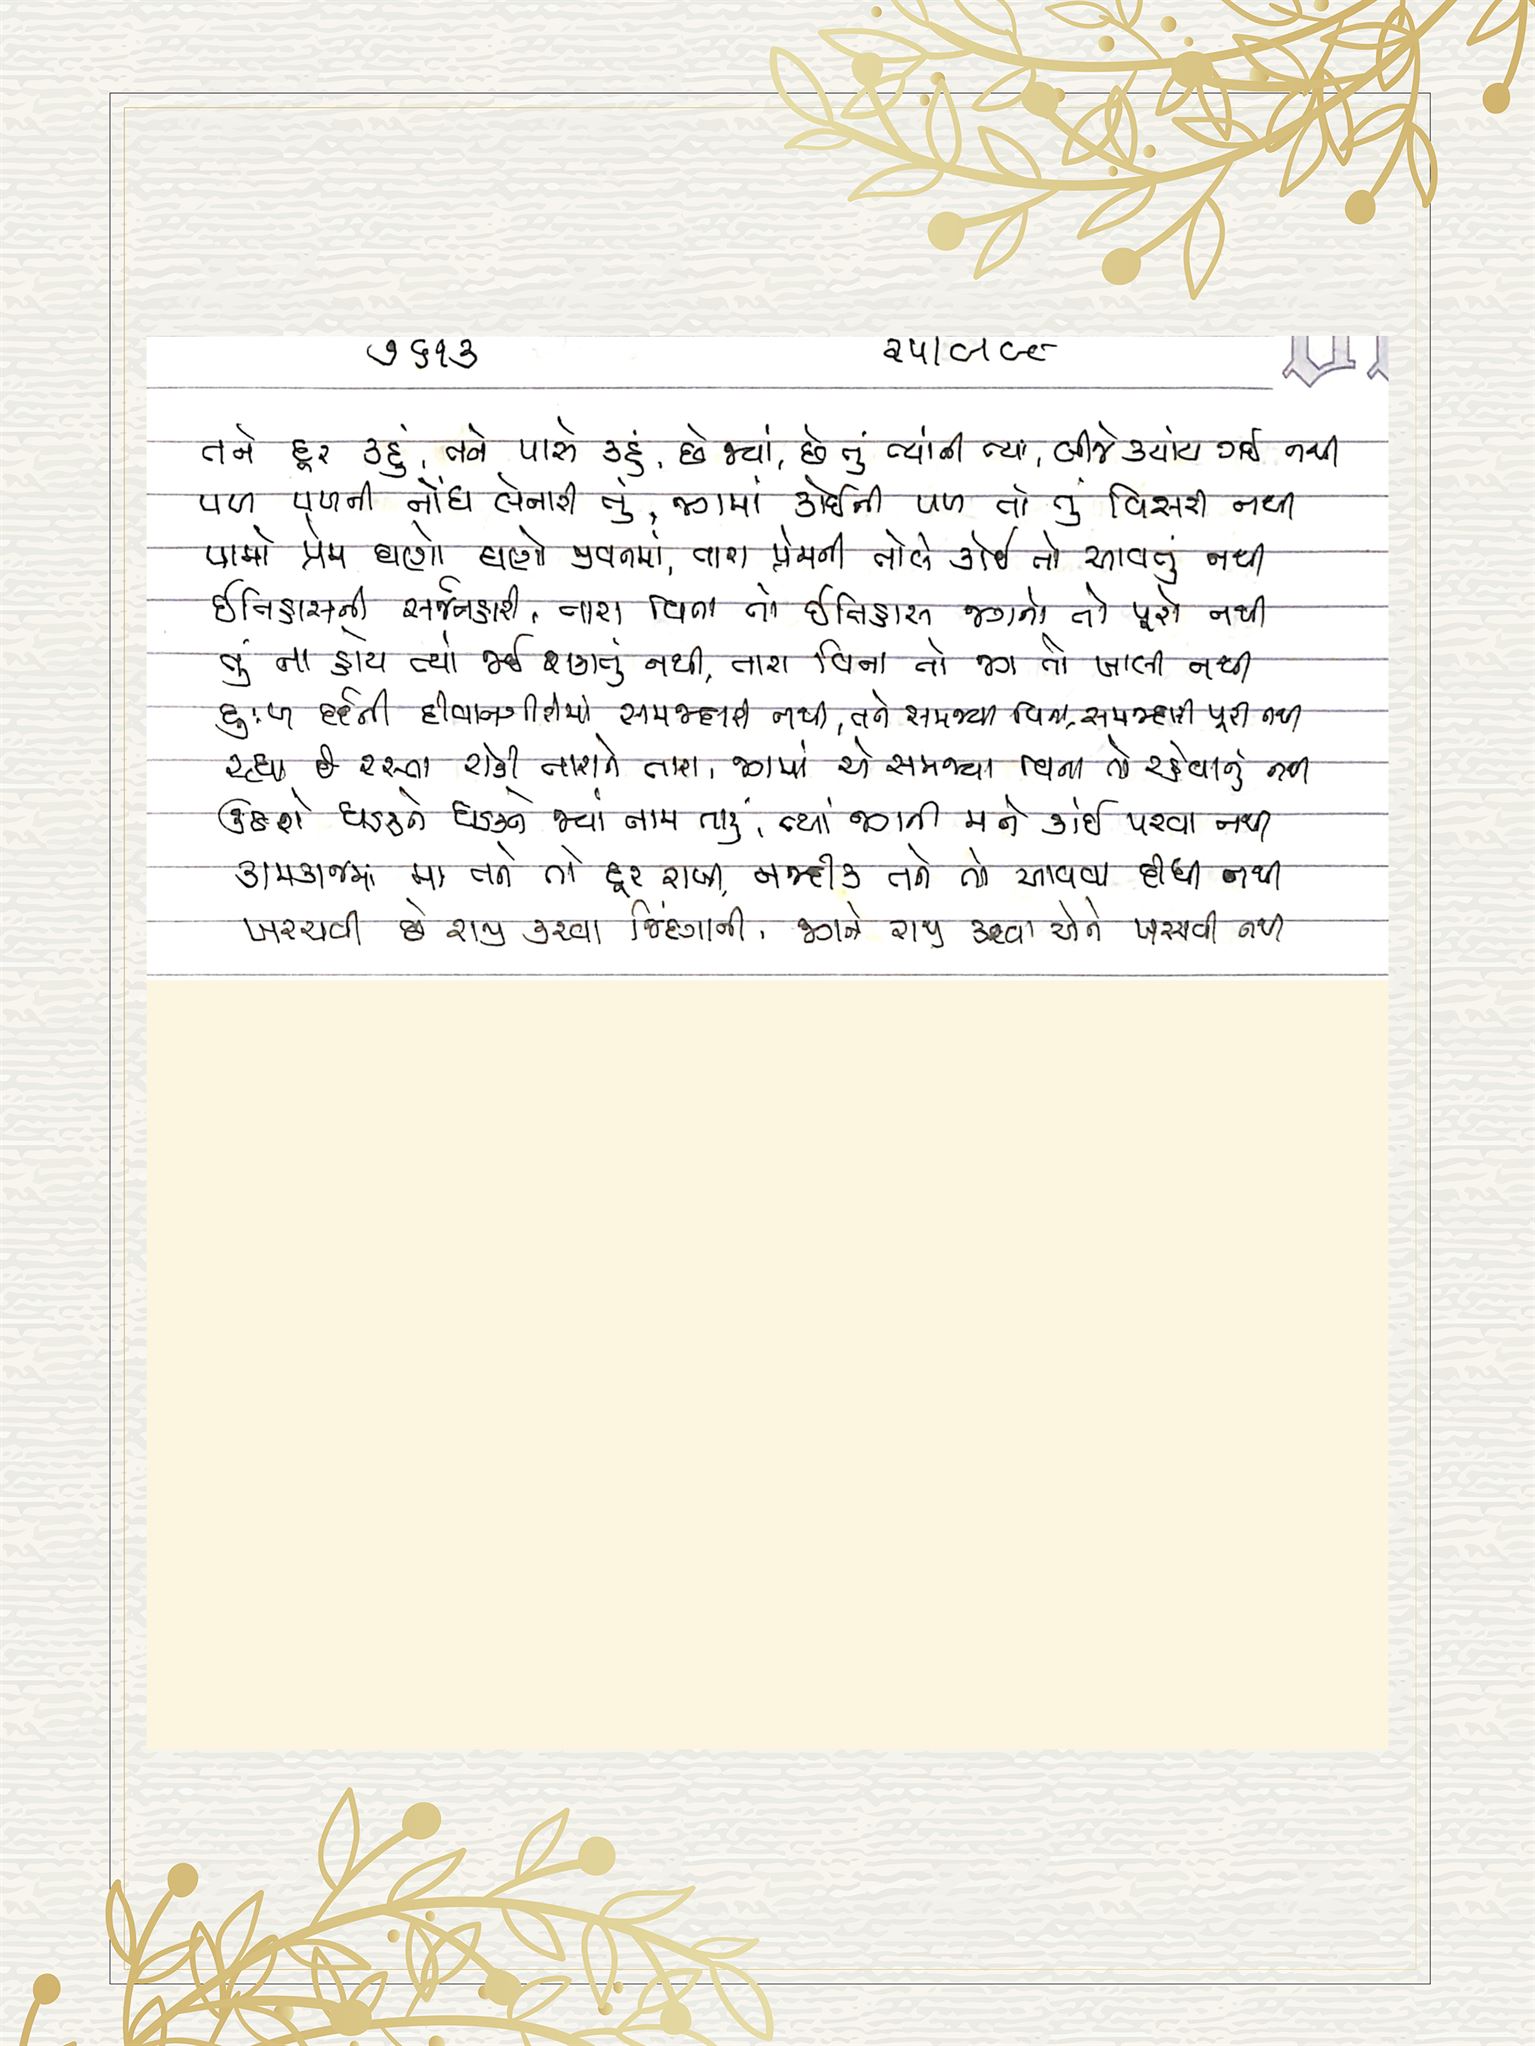 ૭૬૧૩ ૨૫/૮૮૯
તને દૂર કહું, તને પાસે કહું, છે જ્યાં, છે તું ત્યાંની ત્યાં, બીજે ક્યાંય ગઈ નથી
પળ પળની નોંધ લેનારી તું, જગમાં કોઈની પળ તો તું વિસરી નથી
પામો પ્રેમ ઘણો ઘણો જીવનમાં, તારા પ્રેમની તોલે કોઈ તો આવતું નથી
ઈતિહાસની સર્જનહારી, તારા વિના તો ઈતિહાસ જગનો તો પૂરો નથી
તું ના હોય ત્યાં કંઈ થાતું નથી, તારા વિના તો જગ તો ખાલી નથી
દુઃખ દર્દની દીવાનગીમાં સમજદારી નથી, તને સમજ્યા વિના, સમજદારી પૂરી નથી
રહ્યા છે રસ્તા રોકી તારાને તારા, જગમાં એ સમજ્યા વિના તો રહેવાનું નથી
હૈયાને ધડકને ધડકને જ્યાં નામ તારું, ત્યાં જગની મને કાંઈ પરવા નથી
કામકાજમાં મા તને તો દૂર રાખી, નજદીક તને તો આવવા દીધી નથી
ખરચવી છે રાજી કરવા જિંદગાની, જગને રાજી કરવા એને ખરચવી નથી